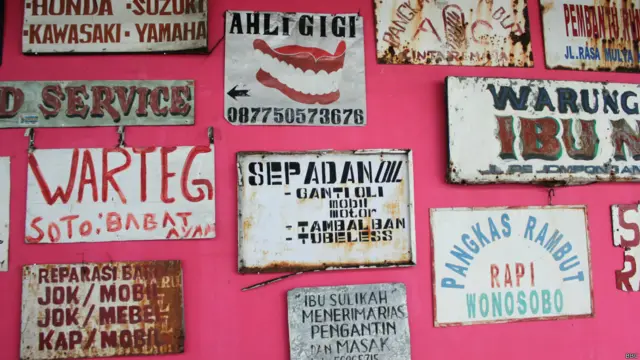 HONDA - SUZUKI
-KAWASAKI - YAMAHA
AHLI GIGI
087750573676
PEMBAN
JL.RASA MULYA
D SERVICE
WARUNG
IBU
WARTEG
SOTO: BABAT
AYAM
SEPADAN OIL
- GANTI OLI
MOBIL
MOTOR
- TAMBAL BAN
- TUBELESS
PANGKAS RAMBUT
RAPI
WONOSOBO
REPARASI
JOK / MOBIL
JOK / MEBEL
KAP / MOBIL
IBU SULIKAH
MENERIMA RIAS
PENGANTIN
DAN MASAK